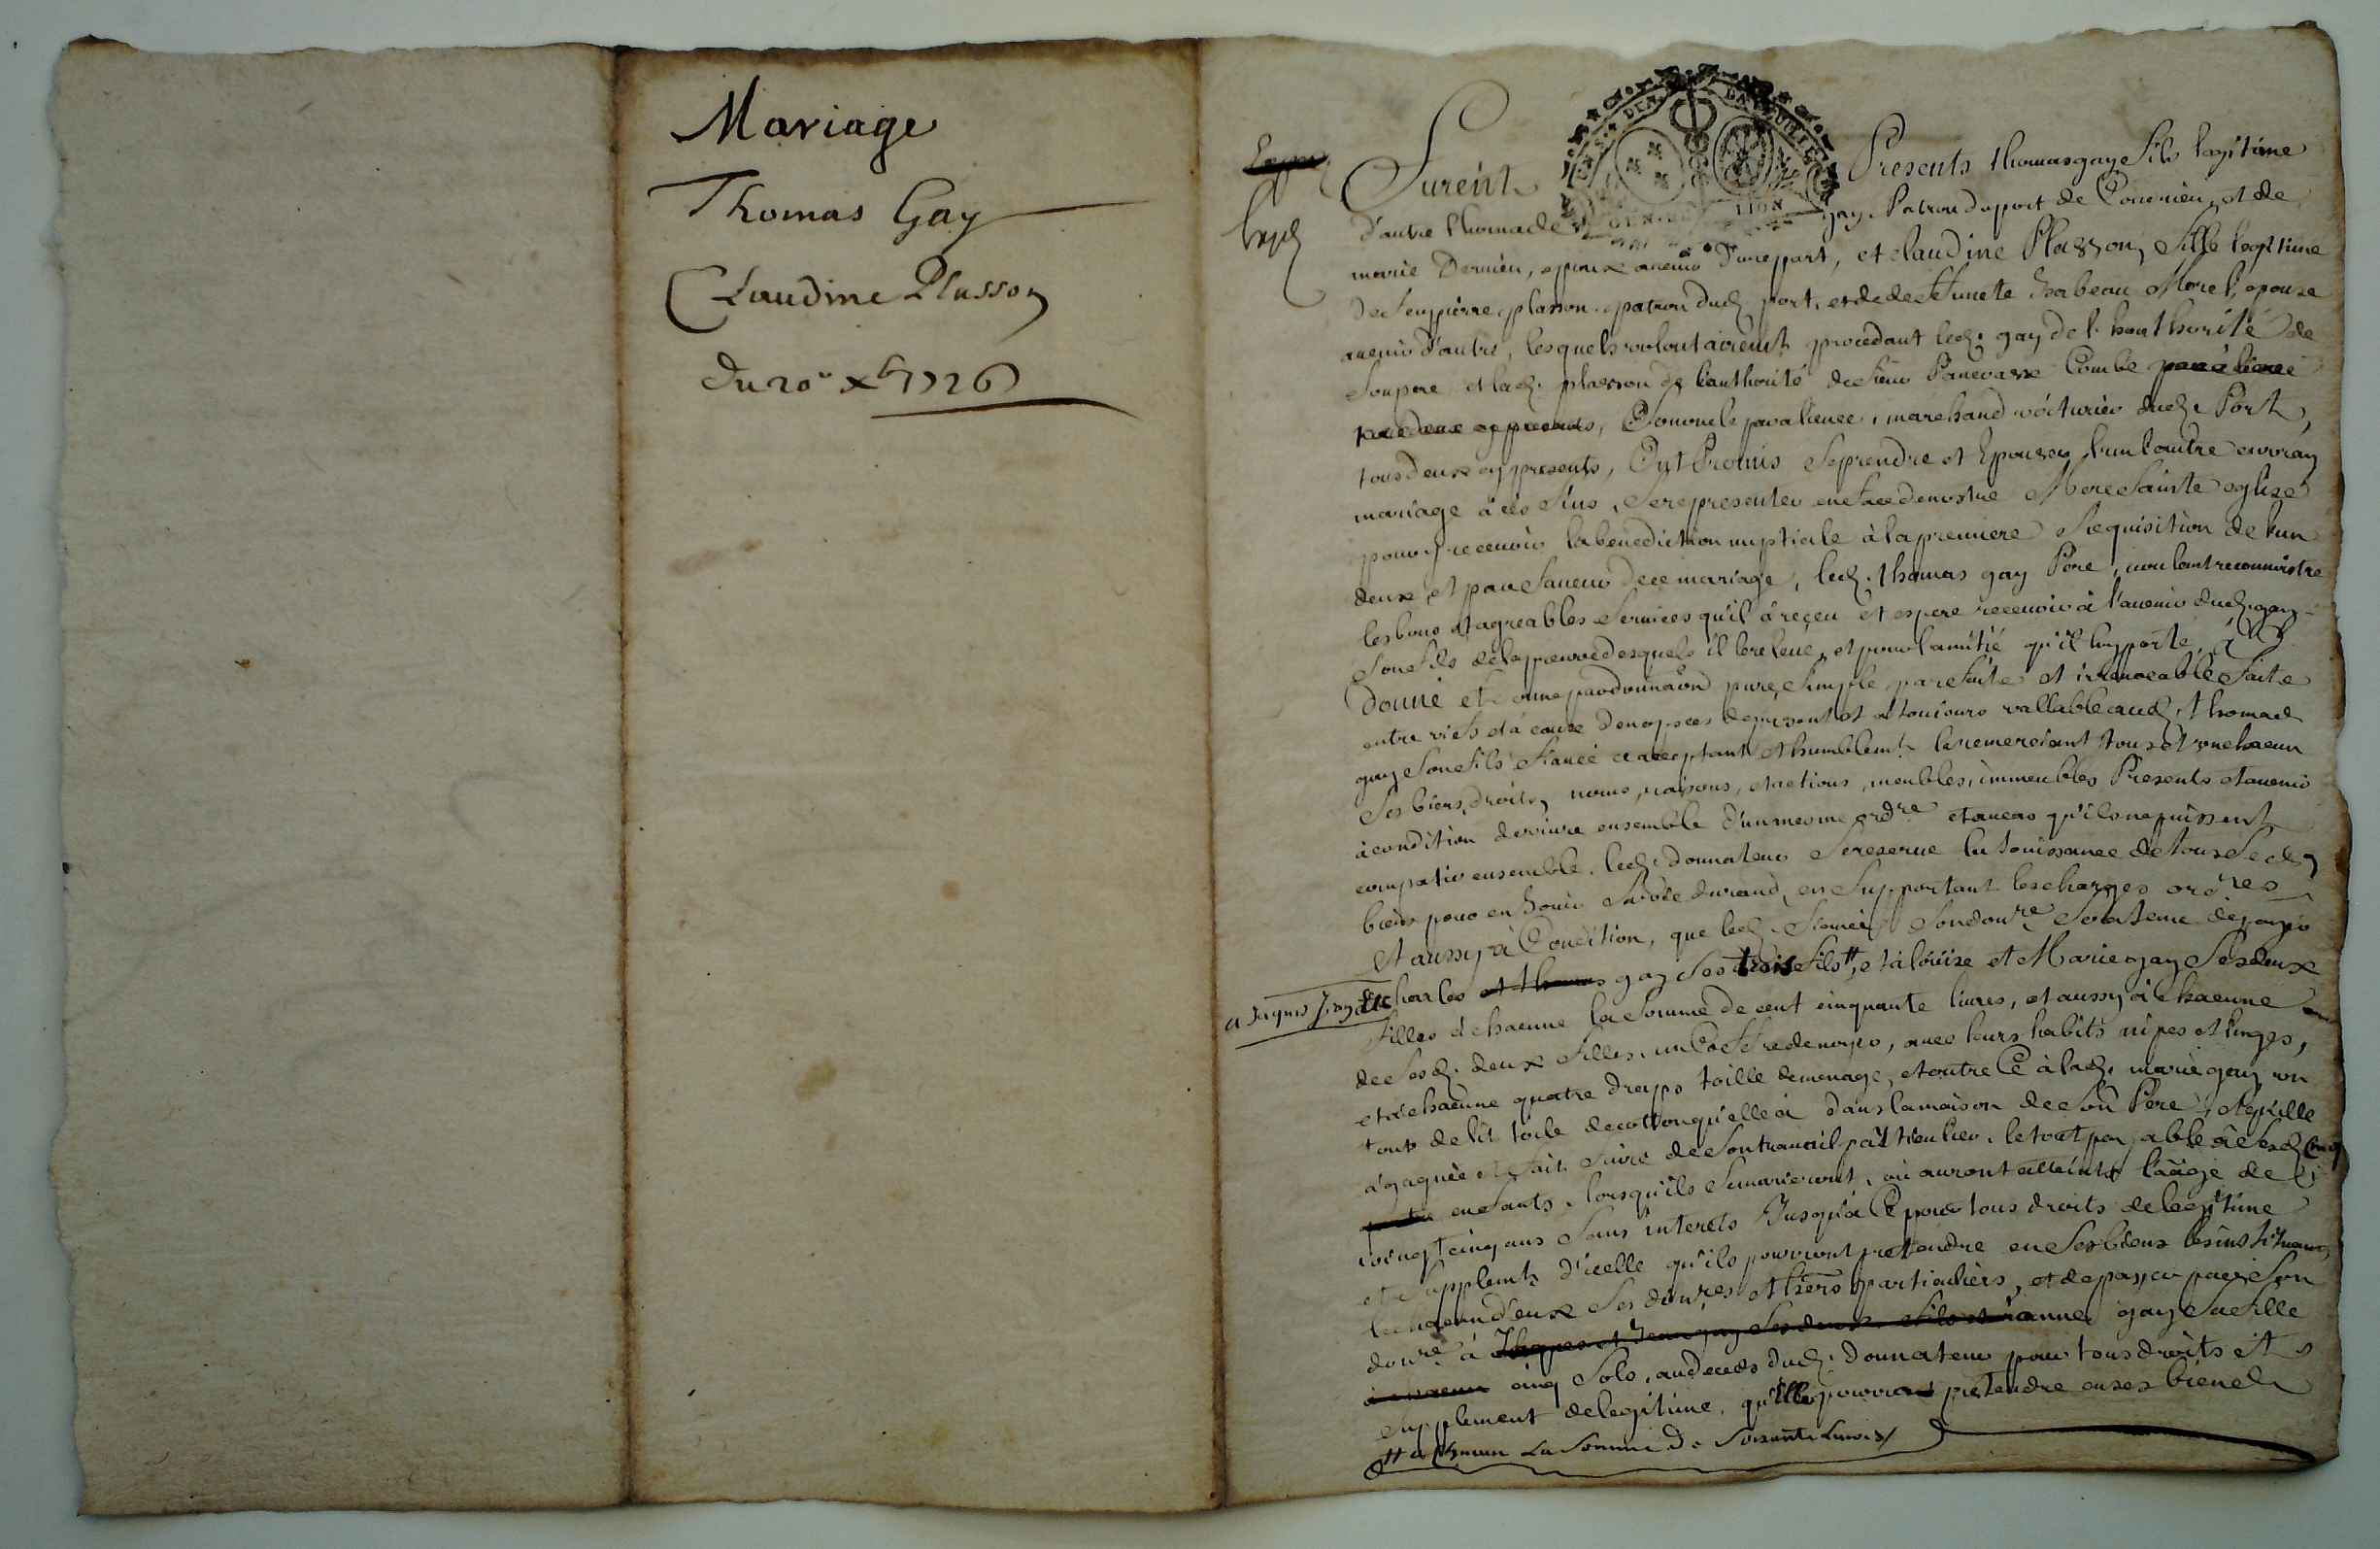 Mariage
Thomas Gay
Claudine Plasson
du 20e xbre 1726
Expd
Furent Presents thomas gay fils legitime
d'autre thomas gay Patron du port de Condrieu, et de
marie Dernieu, epoux avenir d'une part, et claudine Plasson, fille legitime
de feu pierre plasson patron dud. port, et de deffuncte Isabeau Morel, epouse
avenir d'autre, lesquels volontairement procedant led. gay de l'hauthorité de
son pere et lad. plasson de l'authorité de sieur Combe
son oncle marchand voiturier dud. Port,
tous deux cy presents, Ont Promis se prendre et Epouser l'un l'autre en vray
mariage à ces fins, se representer en face de nostre Mere Sainte eglise
pour y recevoir la benediction nuptiale à la premiere Requisition de l'un
deux, et par faveur de ce mariage, led. thomas gay Pere, voulant reconnoistre
les bons et agreables services qu'il à reçeu et espere recevoir à l'avenir dud. gay
son fils de la preuve desquels il le releve, et pour l'amitié qu'il luy porte, à
donné et donne par donnaõn pure, simple, parfaite et irrevocable faite
entre vifs et à cause de nopces de present et à toujours vallable aud. thomas
gay son fils fiancé acceptant et humblemt le remerciant tous et un chacun
ses biens, droits, noms, raisons, et actions, meubles, immeubles Presents et avenir
à condition de vivre ensemble d'un mesme ordre et au cas qu'ils ne puissent
compatir ensemble, led. donnateur se reserve la jouissance de tous sesd.
biens pour en jouir sa vie durand, en supportant les charges ordres
Et aussy à Condition, que led. fiancé son donre sera tenu de payer
a Jaques Jean et
charles gay ses trois fils ++, et à loüise et Marie gay ses deux
filles à chacune la somme de cent cinquante livres, et aussy à chacune
de sesd. deux filles, un Coffre de noyer, avec leurs habits nipes et linges,
et à chacune quatre draps toille de menage, et outre Ce à lad. marie gay un
tour de lit toile de cotton qu'elle à dans la maison de son Pere, et qu'elle
à gagnée et fait faire de son travail particulier, le tout payable à sesd. cinq
enfants, lorsqu'ils se marieront, ou auront atteints l'aâge de
vingt cinq ans sans interets Jusqu'à Ce pour tous droits de legitime
et supplemts d'icelle qu'ils pourront pretendre en ses biens les instituant
chacun d'eux ses donres et hers particuliers, et de payer par son
donre à anne gay sa fille
cinq sols, au deces dud. donnateur pour tous droits et
supplement de legitime, qu'elle pourra pretendre en ses biens
++ à Chacun La somme de soixante Livres